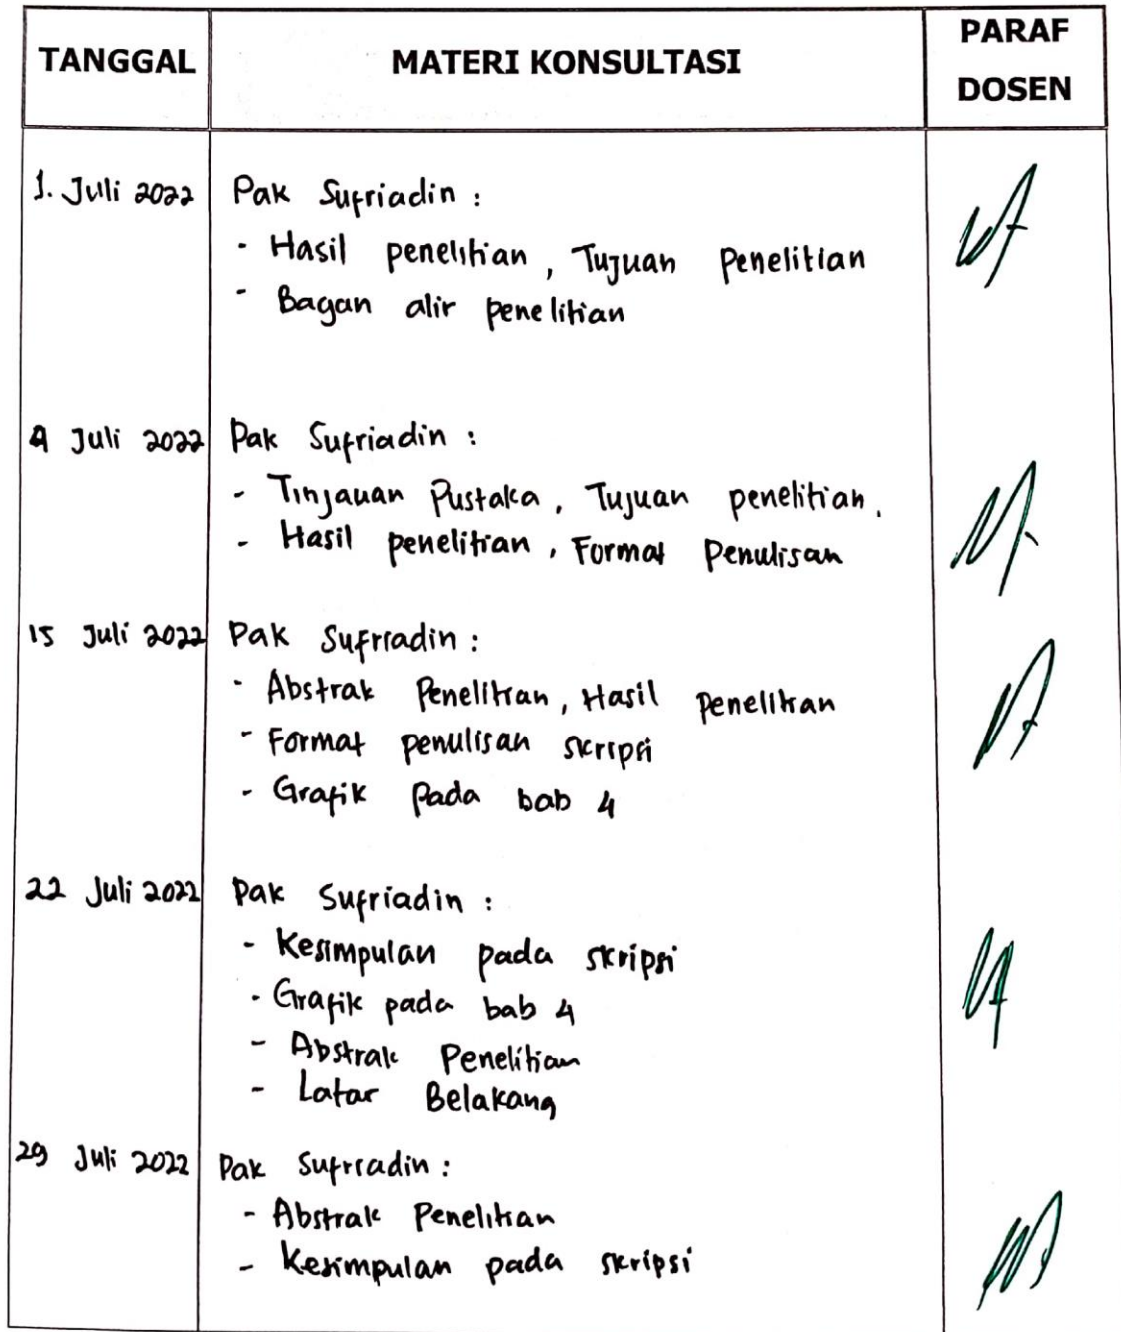 TANGGAL MATERI KONSULTASI PARAF DOSEN
1. Juli 2022 Pak Sufriadin :
- Hasil penelitian, Tujuan Penelitian
- Bagan alir penelitian
Juli 2022 Pak Sufriadin :
- Tinjauan Pustaka, Tujuan penelitian.
- Hasil penelitian, Format Penulisan
15 Juli 2022 Pak Sufriadin :
- Abstrak Penelitian, Hasil Penelitian
- Format penulisan skripsi
- Grafik Pada bab 4
22 Juli 2022 Pak Sufriadin :
- Kesimpulan pada skripsi
- Grafik pada bab 4
- Abstrak Penelitian
- Latar Belakang
29 Juli 2022 Pak Sufriadin :
- Abstrak Penelitian
- Kesimpulan pada skripsi